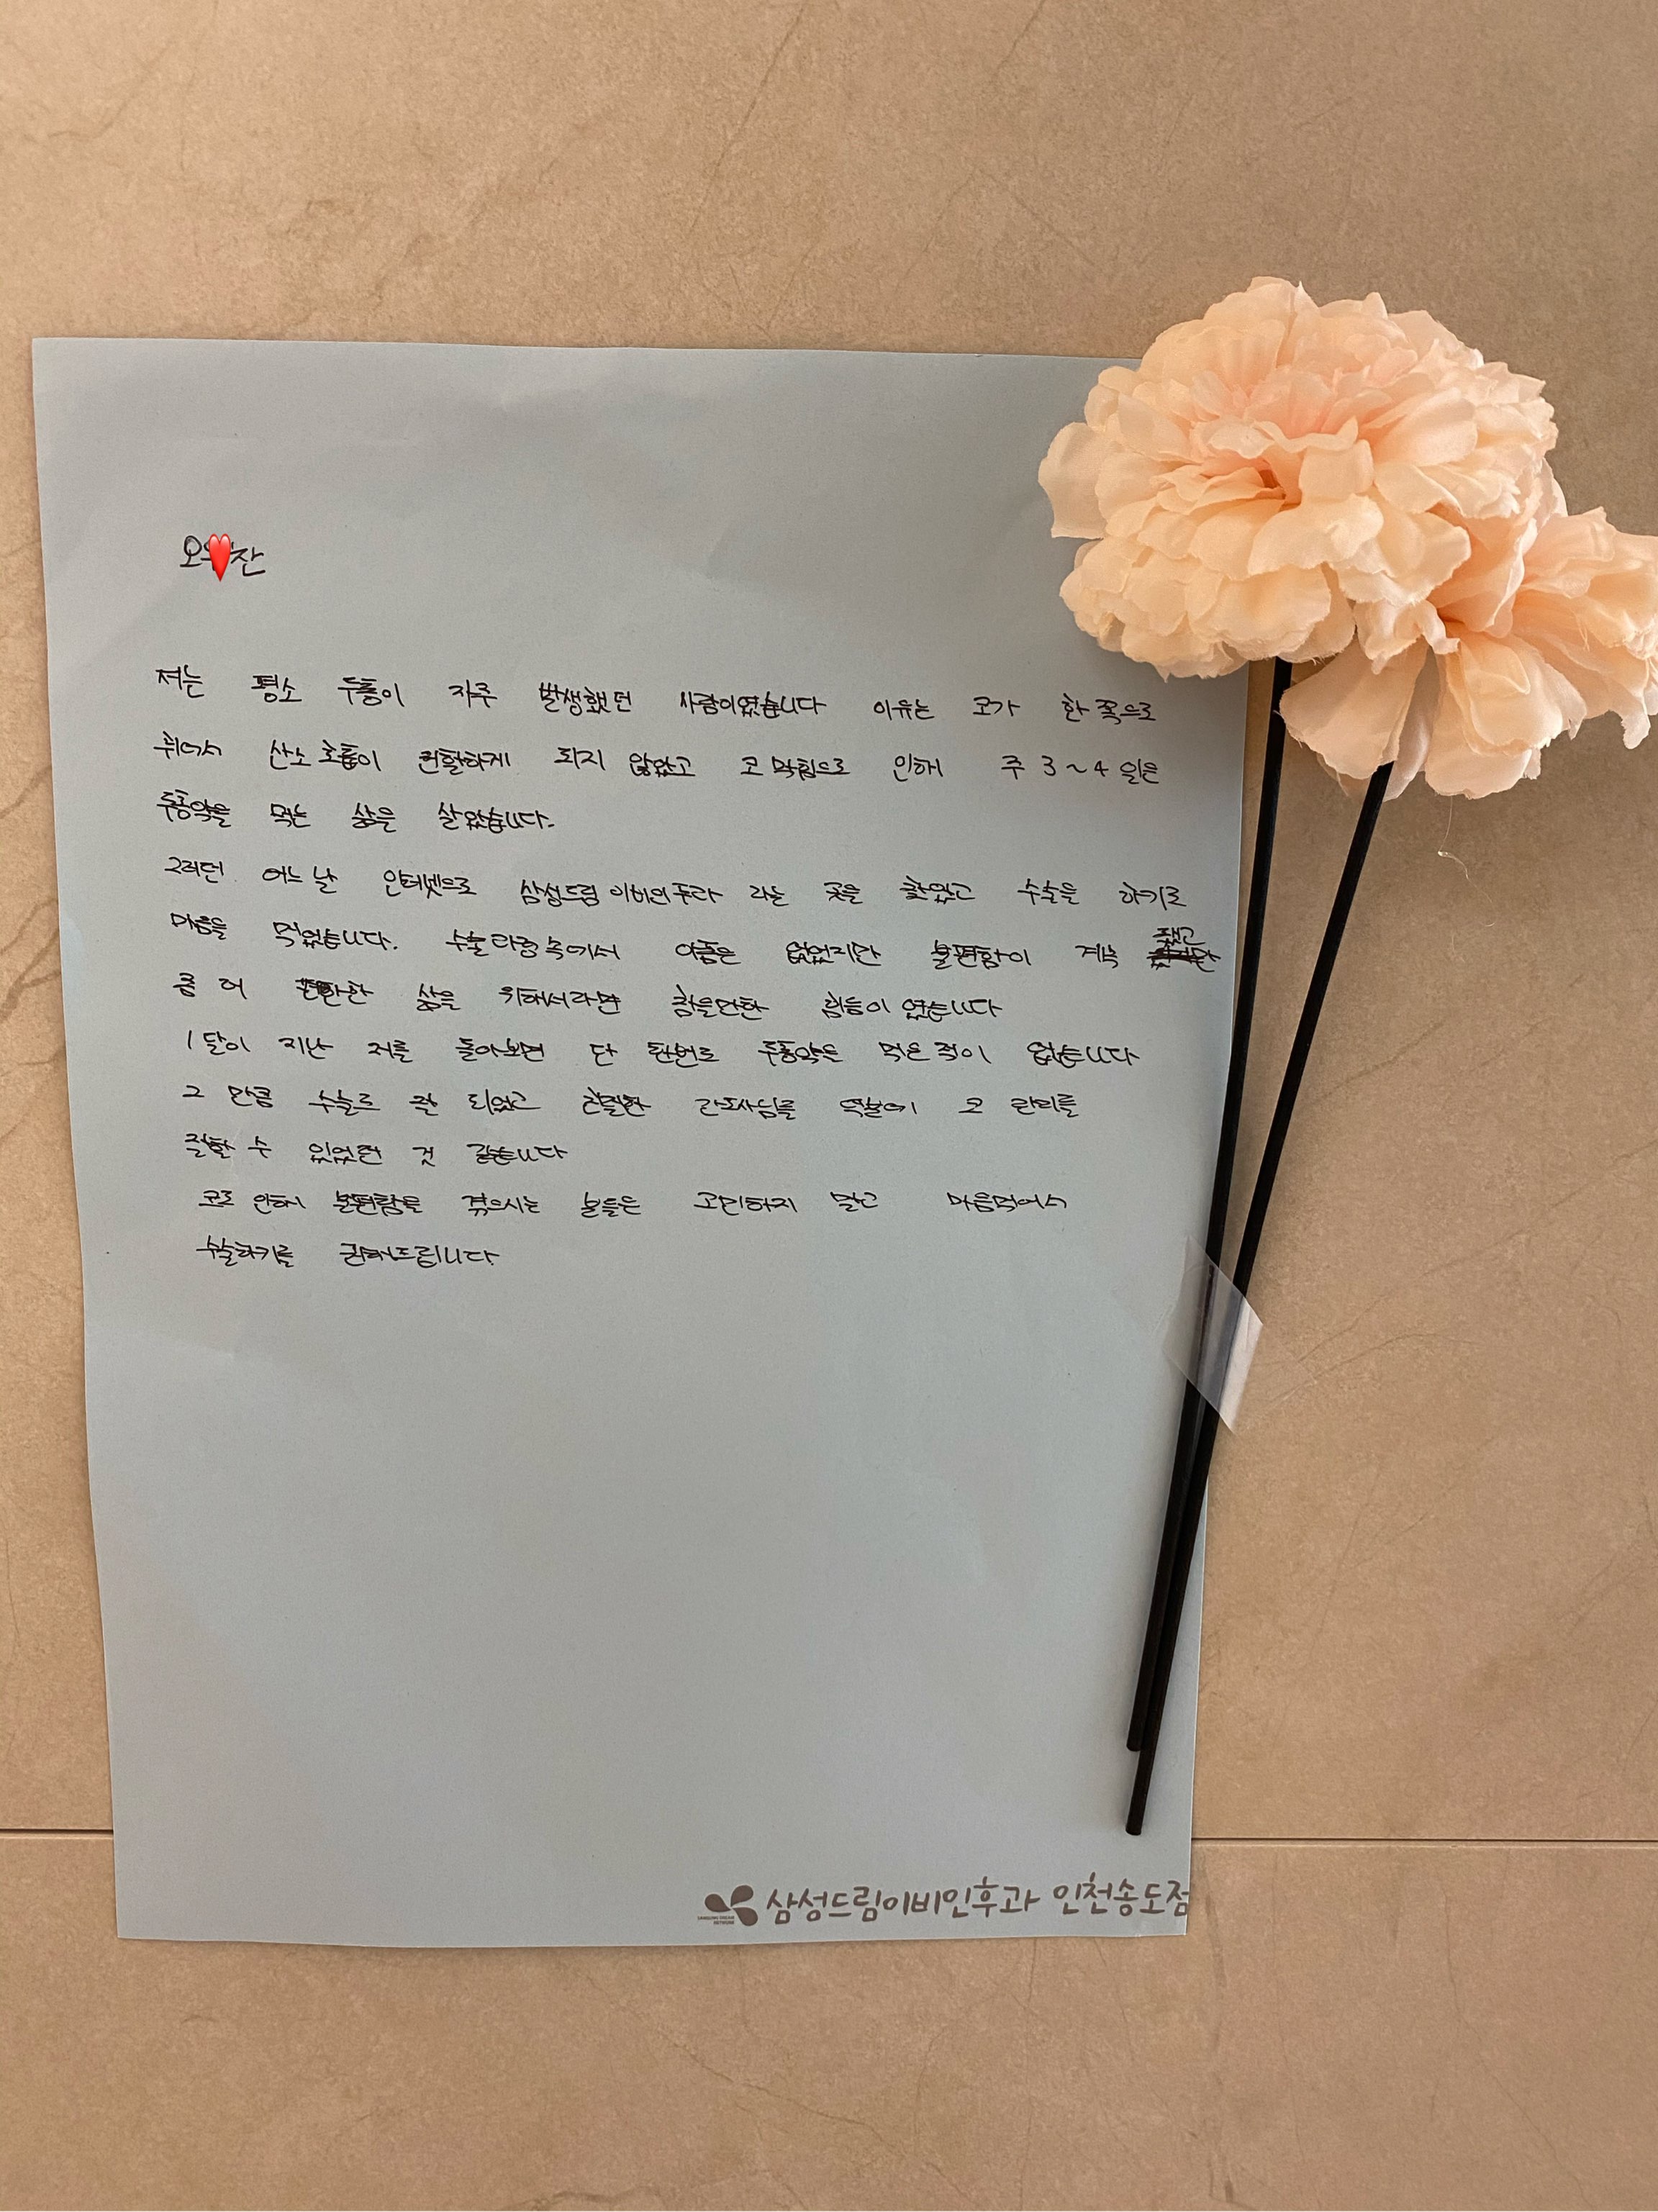 오 잔
저는 평소 두통이 자주 발생했던 사람이였습니다 이유는 코가 한쪽으로
휘어서 산소호흡이 원활하게 되지 않았고 코막힘으로 인해 주 3~4일은
두통약을 먹는 삶을 살았습니다.
그러던 어느날 인터넷으로 삼성드림이비인후과 라는 곳을 찾았고 수술을 하기로
마음을 먹었습니다. 수술과정속에서 아픔은 없었지만 불편함이 계속 됐고
좀 더 편한 삶을 위해서라면 참을만한 힘듬이였습니다
1달이 지난 저를 돌아보면 단 한번도 두통약은 먹은적이 없습니다
그 만큼 수술도 잘 되었고 친절한 간호사님들 덕분에 코 관리를
잘할 수 있었던 것 같습니다
코로 인해 불편함을 겪으시는 분들은 고민하지 말고 마음먹어서
수술하기를 권해드립니다.
삼성드림이비인후과 인천송도점